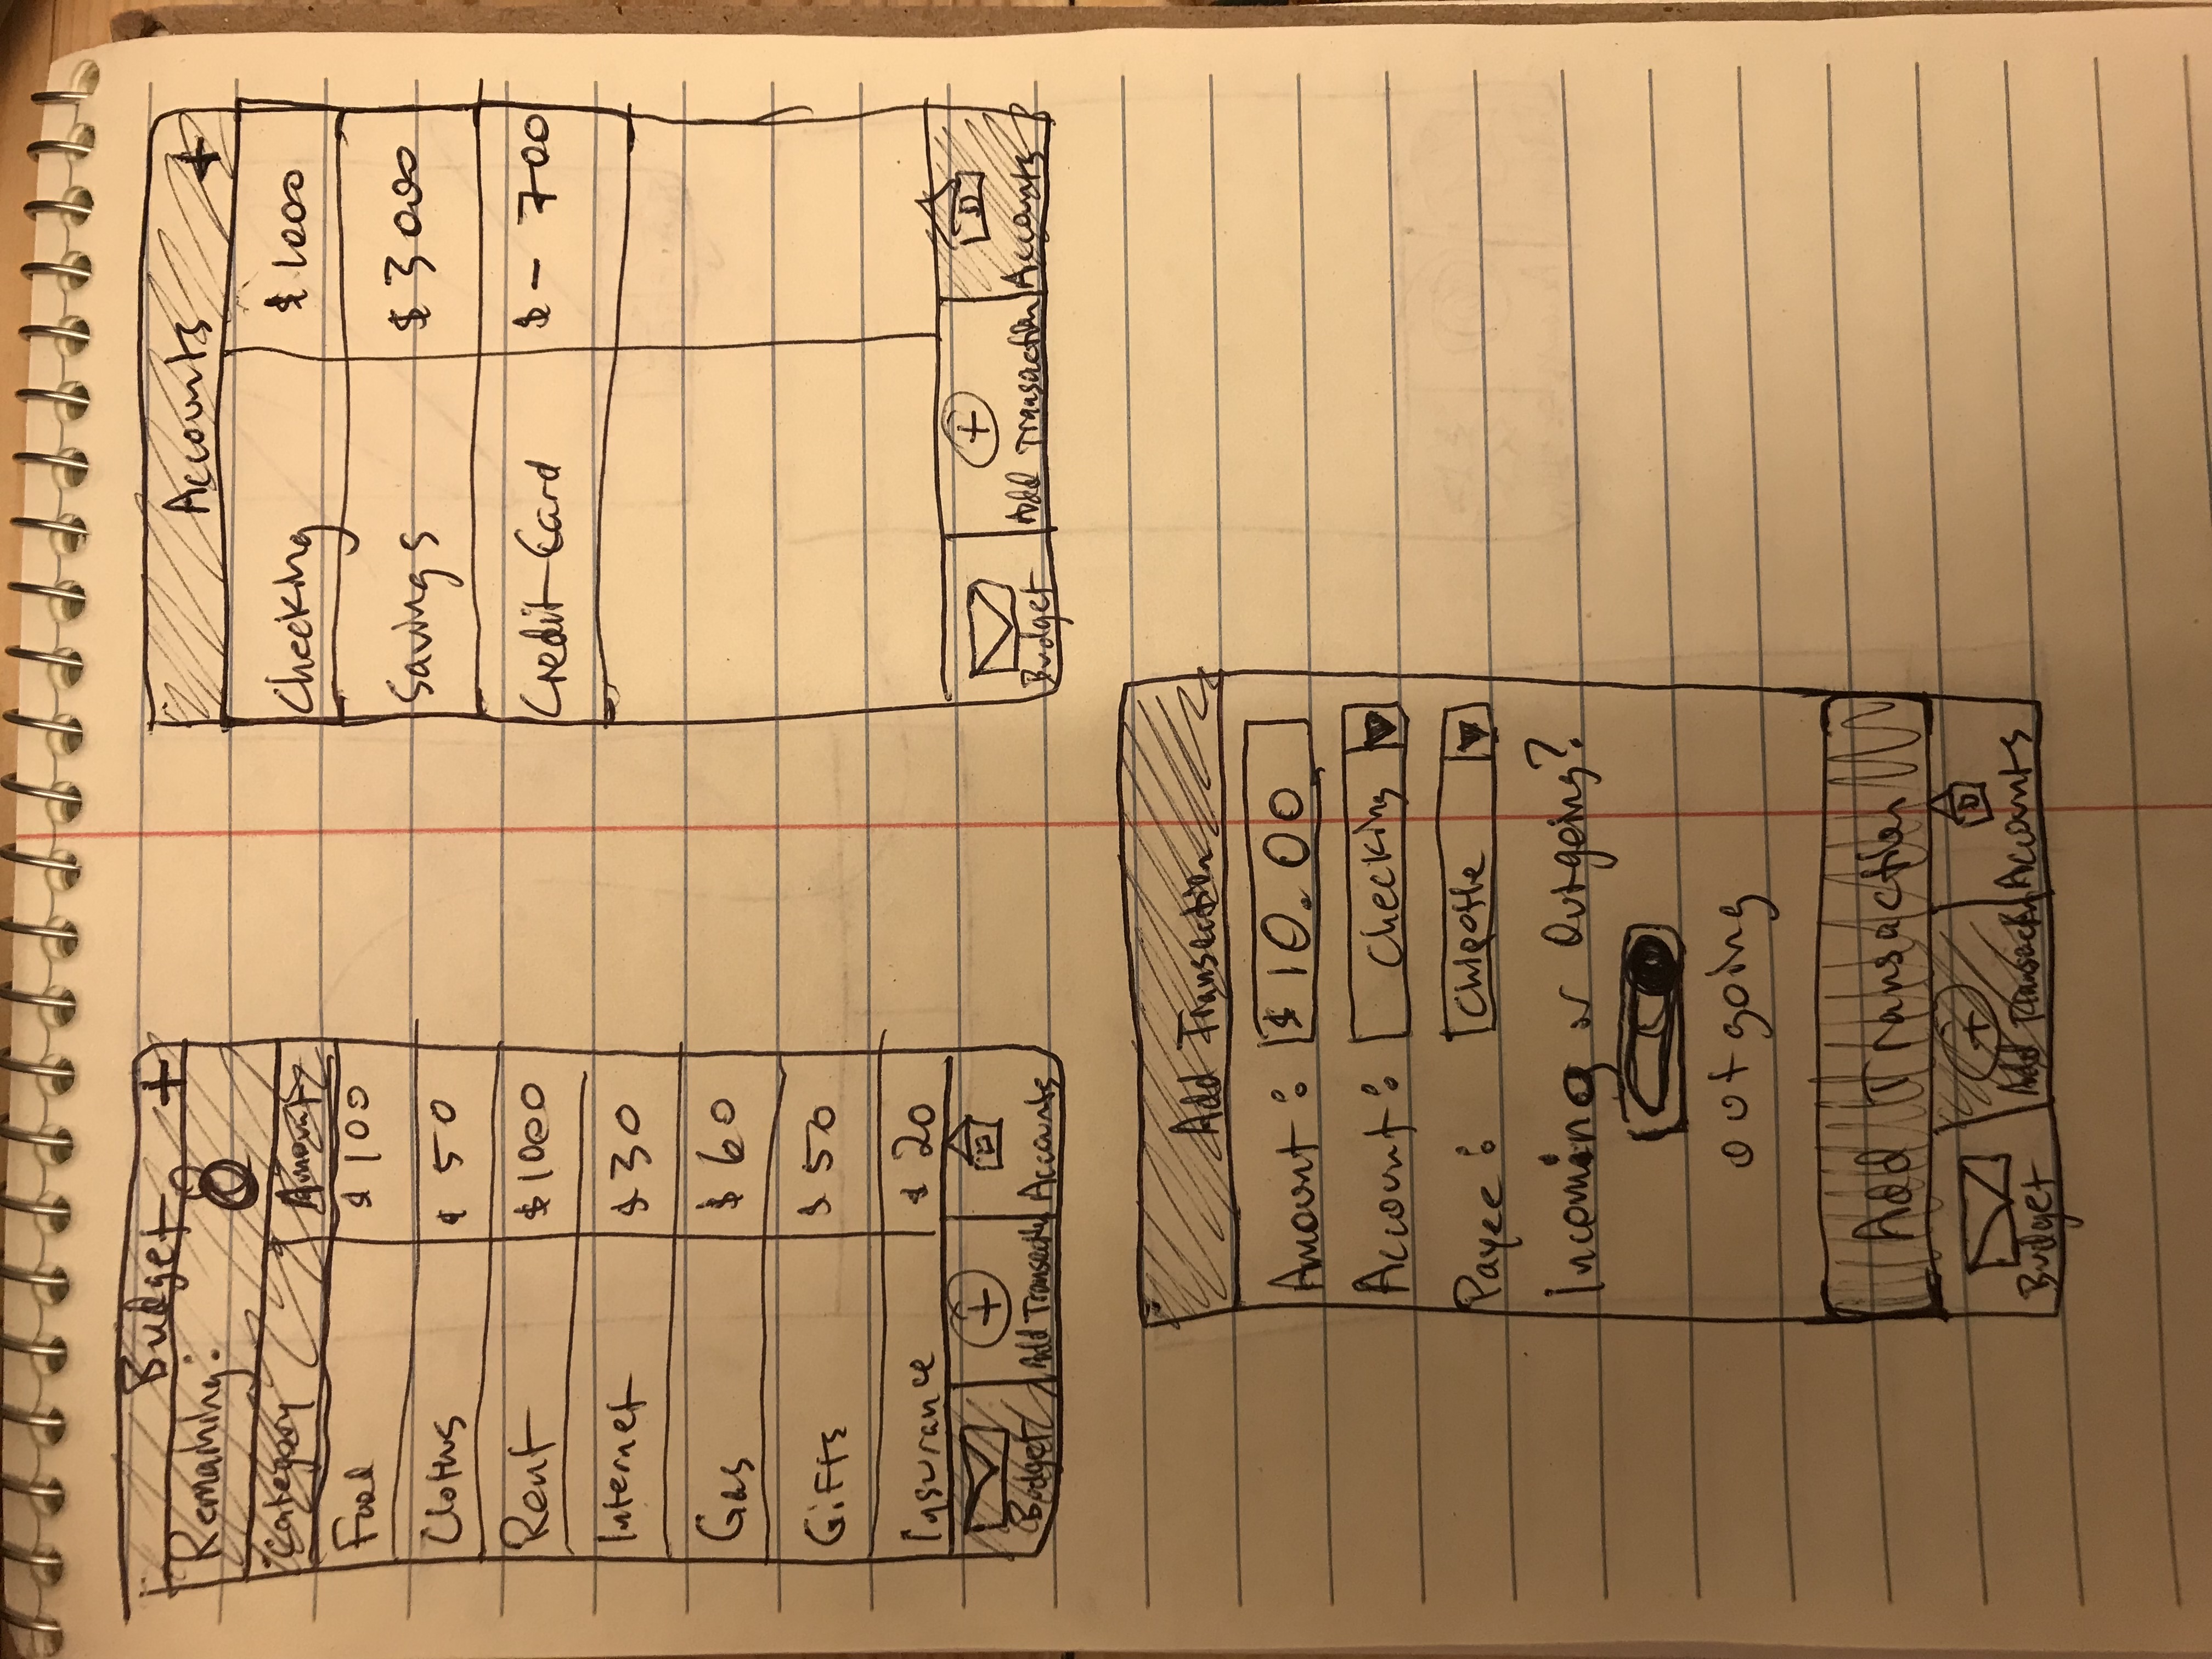 Budget +
Remaining: 0
Category Amount
Food $ 100
Cloths $ 50
Rent $ 1000
Internet $ 30
Gas $ 60
Gifts $ 50
Insurance $ 20
Budget Add Transaction Accounts
Accounts +
Checking $ 1000
Savings $ 3000
Credit Card $ - 700
Budget Add Transaction Accounts
Add Transaction
Amount: $ 10.00
Account: Checking
Payee: Chipotle
Incoming or Outgoing?
outgoing
Add Transaction
Budget Add Transaction Accounts